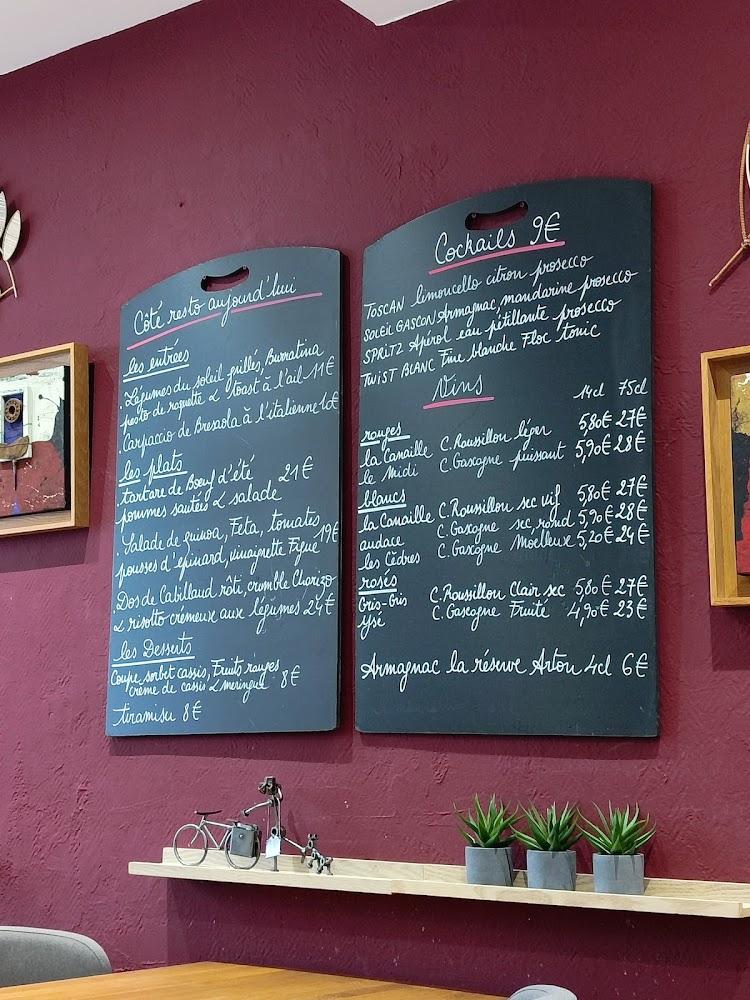 Côté resto aujourd'hui
les entrées
. Légumes du soleil grillés, Burratina
pesto de roquette & toast à l'ail 11€
. Carpaccio de Bresaola à l'italienne
les plats
tartare de Bœuf d'été 21€
pommes sautées & salade
. Salade de quinoa, Feta, tomates
pousses d'épinard, vinaigrette Figue 19€
. Dos de Cabillaud rôti, crumble Chorizo
& risotto crémeux aux légumes 24€
les Desserts
Coupe sorbet cassis, Fruits rouges
crème de cassis & meringue 8€
tiramisu 8€
Cockails 9€
TOSCAN limoucello citron prosecco
SOLEIL GASCON Armagnac, mandarine prosecco
SPRITZ Apérol eau pétillante prosecco
TWIST BLANC Fine blanche Floc tonic
Vins
14cl 75cl
rouges
la Canaille C. Roussillon léger 5,80€ 27€
le Midi C. Gascogne puissant 5,90€ 28€
blancs
la Canaille C. Roussillon sec vif 5,80€ 27€
audace C. Gascogne sec, rond 5,90€ 28€
les Cèdres C. Gascogne Moelleux 5,20€ 24€
rosés
Gris-Gris C. Roussillon Clair sec 5,80€ 27€
Ysé C. Gascogne Fruité 4,90€ 23€
Armagnac la réserve Arton 4cl 6€